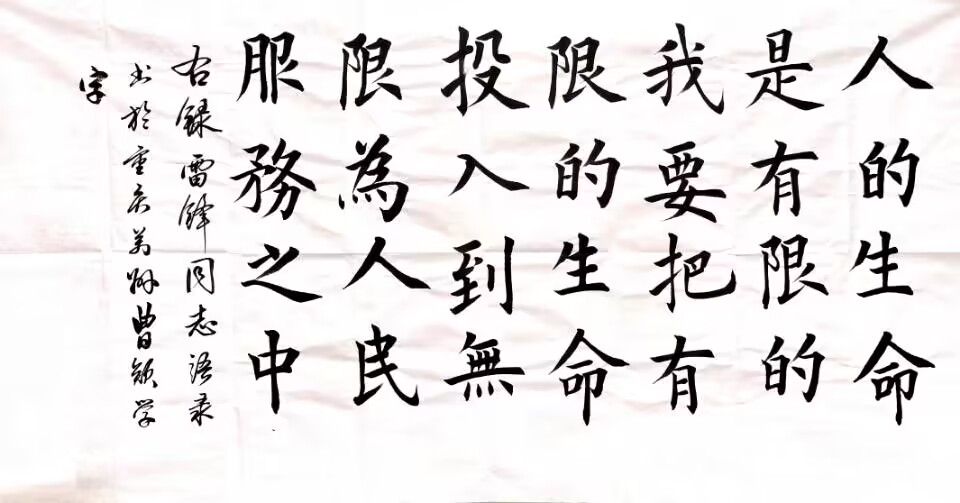 人的生命
是有限的
我要把有
限的生命
投入到無
限為人民
服務之中
右録雷鋒同志语录
书於重庆万州曹颖学
字